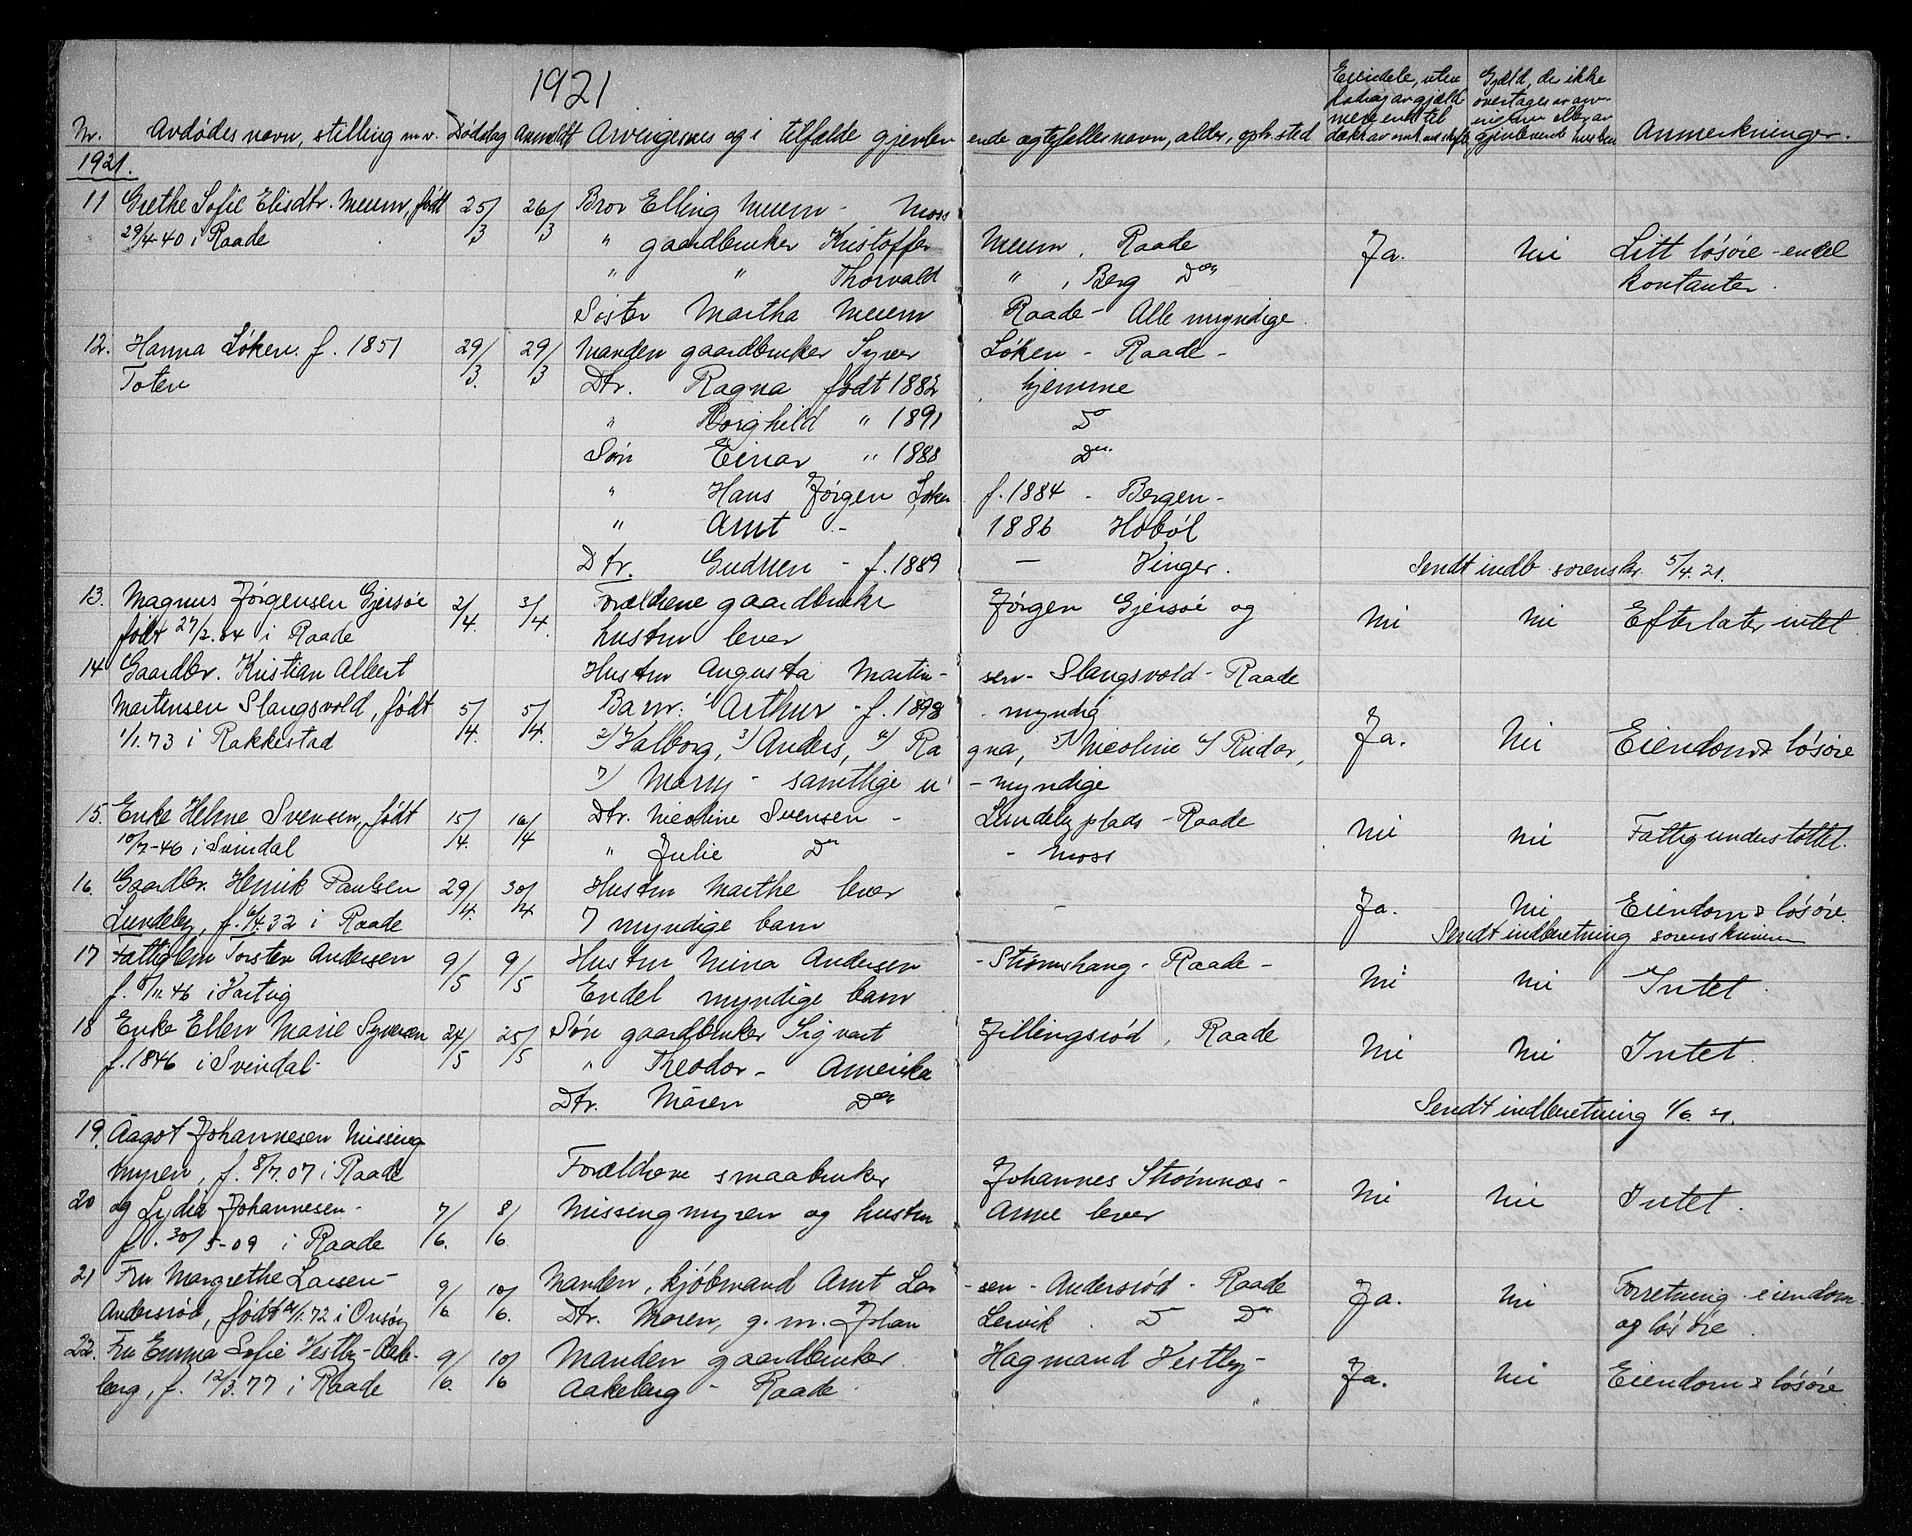 1921
Nr. Avdødes navn, stilling m.v. Dødsdag Anmeldt Arvingernes og i tilfælde gjenlev ende ægtefælles navn, alder, oph.sted Eiendele, uten fradrag av gjæld mere end til Gjæld, der ikke overtages av arvingerne eller av gjenlevende Anmerkninger.
1921.
11 Grethe Sofie Elisdtr. Meum, født 25/3 26/3 Bror Elling Meum - Moss
29/4-40 i Raade " gaardbruker Kristoffer Meum, Raade Ja. Nei Litt løsøre - endel
" " Thorvald " , Berg Do kontanter.
Søster Martha Meum Raade - Alle myndige.
12. Hanna Løken. f. 1851 29/3. 29/3 Manden gaardbruker Syver Løken - Raade -
Toten Dtr. Ragna født 1882 hjemme
" Borghild " 1891 Do
Søn Einar " 1888 Do.
" Hans Jørgen Løken f. 1884 - Bergen -
" Arnt - 1886 Hobøl
Dtr. Gudrun - f. 1889 - Vinger. Sendt indb. sorenskr. 5/4.21.
13. Magnus Jørgensen Gjersøe 2/4. 3/4. Forældrene gaardbruker Jørgen Gjersøe og Nei Nei Efterlater intet.
født 27/2.04 i Raade hustru lever
14 Gaardbr. Kristian Albert Hustru Augusta Martin- sen - Slangsvold - Raade
Martensen Slangsvold, født 5/4. 5/4. Barn: 1/ Arthur - f. 1898 - myndig
1/1.73 i Rakkestad 2/ Valborg, 3/ Anders, 4/ Ra gna, 5/ Nicoline 6/ Rudar, Ja. Nei Eiendom & løsøre
7/ Marry - samtlige u - myndige
15. Enke Helene Svensen, født 15/4. 16/4 Dtr. Nicoline Svensen - Lundeby plads - Raade Nei Nei Fattigunderstøttet.
10/7-46 i Svindal " Julie Do - Moss
16. Gaardbr. Henrik Paulsen 29/4. 30/4 Hustru Marthe lever - Ja. Nei Eiendom & løsøre.
Lundeby, f. 6/4.32 i Raade 7 myndige barn Sendt indberetning sorenskriveren
17 Fattiglem Torsten Andersen 9/5 9/5 Hustru Mina Andersen - Strømshaug - Raade - Nei Nei Intet.
f. 8/11.46 i Varteig Endel myndige barn
18 Enke Ellen Marie Syversen 24/5 25/5 Søn gaardbruker Sigvart Fillingsrød, Raade Nei Nei Intet.
f. 1846 i Svindal. " Theodor - Amerika
Dtr. Maren Do Sendt indberetning 1/6.21.
19. Aagot Johannesen Missing
myren, f. 8/7.07 i Raade Forældrene smaabruker Johannes Strømnæs - Nei Nei Intet.
20 og Lydia Johannesen - 7/6. 8/6. Missingmyren og hustru Anne lever
f. 30/5-09 i Raade
21 Fru Margrethe Larsen - 9/6. 10/6. Manden, kjøbmand Arnt Lar -sen - Andersrød - Raade Ja. Nei Forretning - eiendom.
Andersrød, født /1.72 i Onsøy Dtr. Maren, g. m. Johan Lervik. Do Do og løsøre.
22. Fru Emma Sofie Vestby - Aake- 9/6. 10/6 Manden gaardbruker Hagmand Vestby - Ja. Nei Eiendom & løsøre
berg, f. 12/3.77 i Raade Aakeberg - Raade.